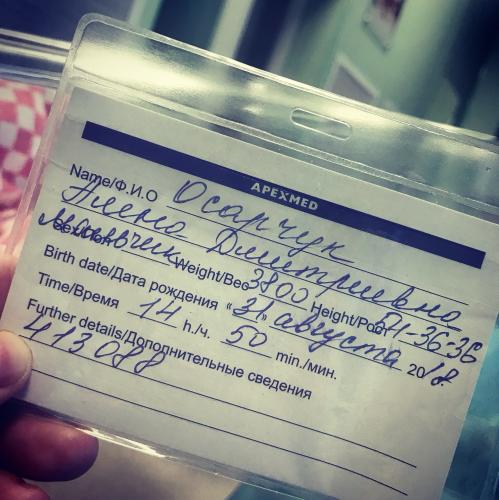 APEXMED
Name/Ф.И.О Осарчук
Алена Дмитриевна
Sex/Пол мальчик Weight/Вес 3800 Height/Рост 54-36-36
Birth date/Дата рождения "31" августа 2018.
Time/Время 14 h./ч. 50 min./мин.
Further details/Дополнительные сведения
413088